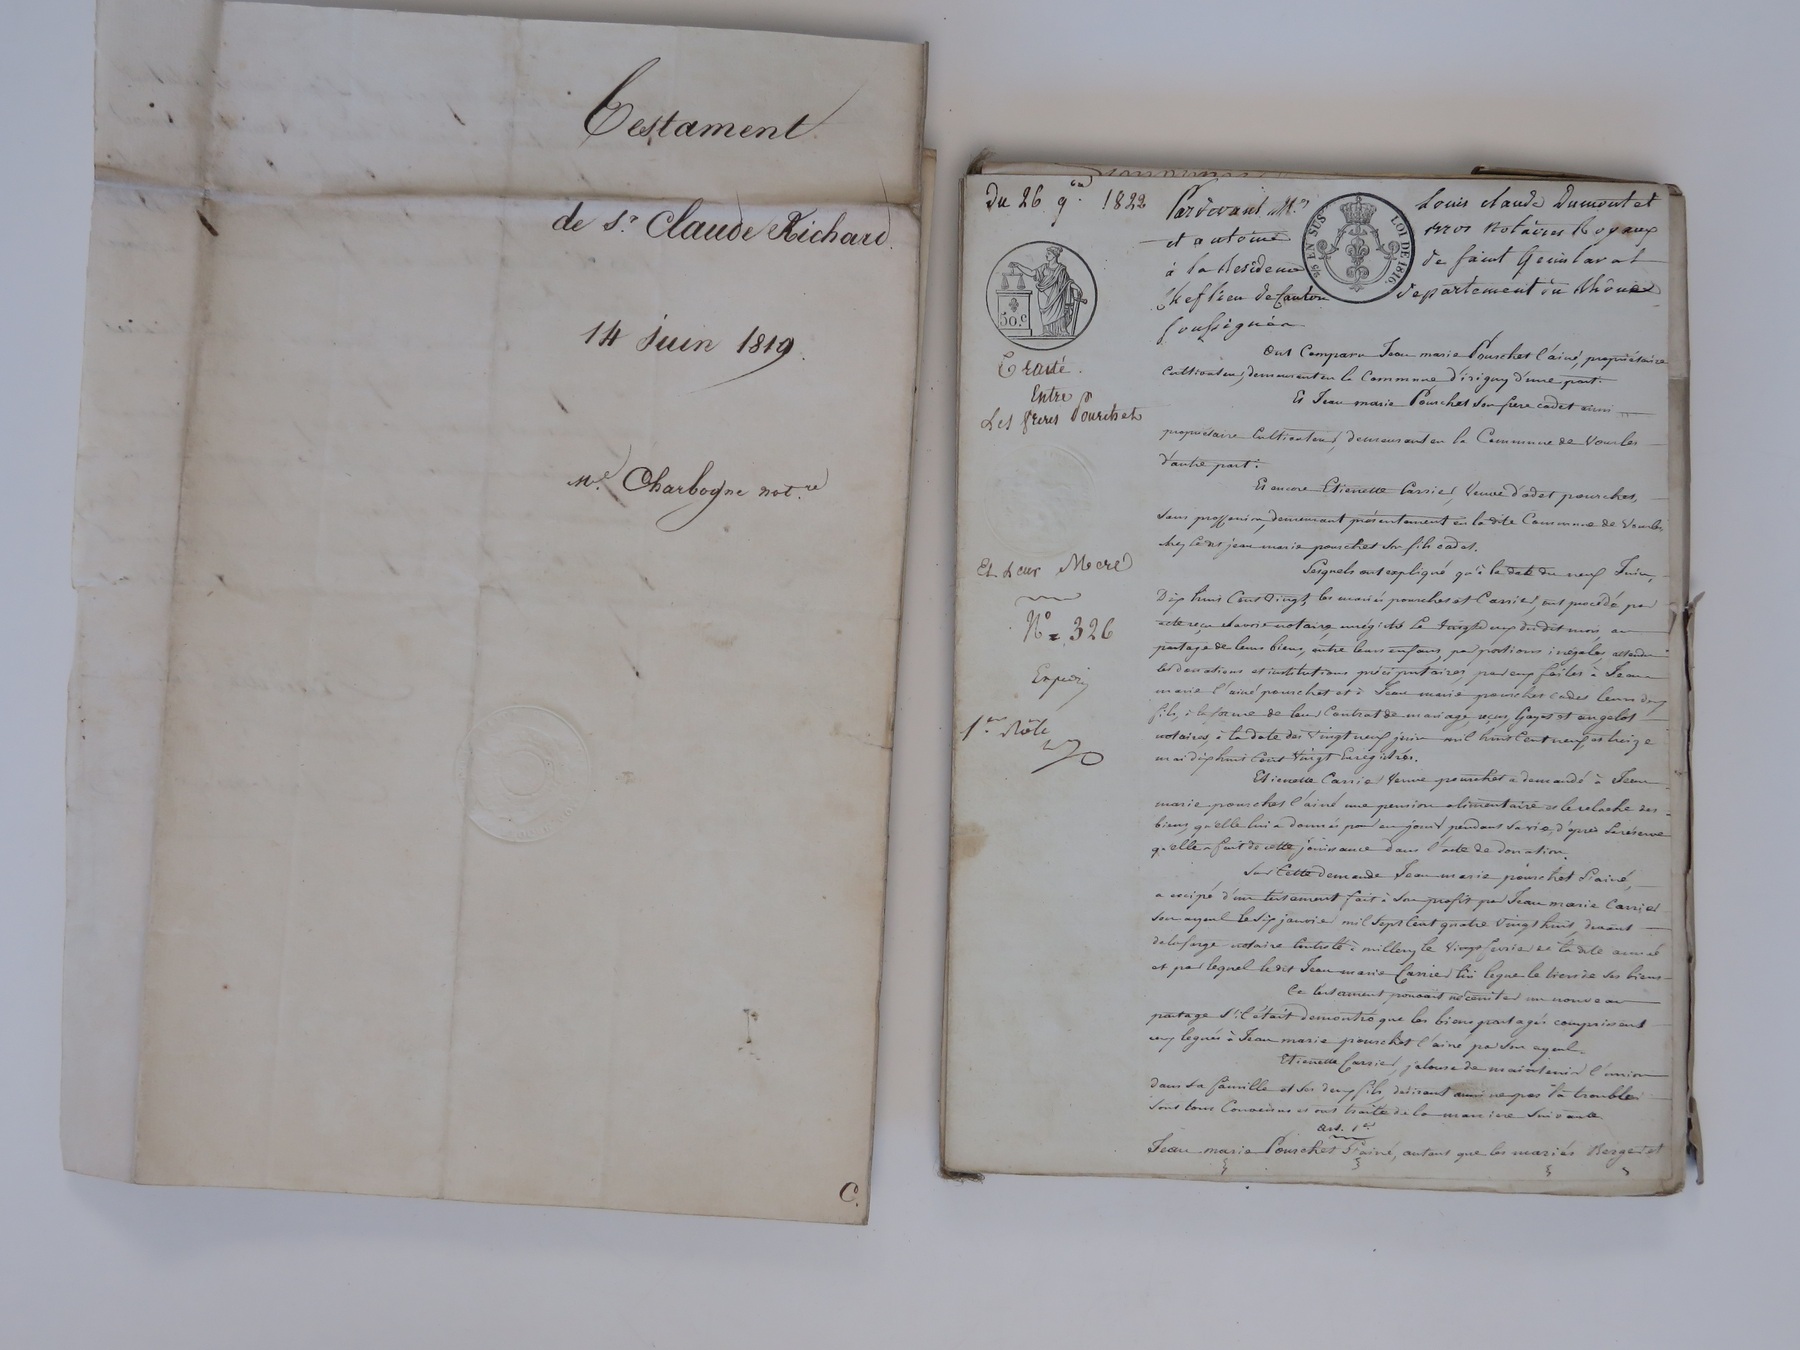 Testament
de Sr. Claude Richard.
14 juin 1819.
Me. Charbogne not.re
C.
du 26 9bre 1822
50 c
Traité.
Entre
Les frères Pourchet
Et Leur Mere
N° = 326
Expédié
1er Rôle
EN SUS
LOI DE 1816.
Pardevant Mes Louis Claude Dumont et
et antoine Notaires Royaux
à la Residence de saint Genis laval
Chef lieu de Canton departement du Rhône
soussignés
Ont Comparu Jean marie Pourchet l'ainé, propriétaire
Cultivateur, demeurant en la Commune d'irigny d'une part.
Et Jean marie Pourchet Son frere cadet aussi
propriétaire Cultivateur, demeurant en la Commune de Vourles
d'autre part.
Et encore Etiennette Carrier, Veuve d'adet pourchet,
Sans proffession, demeurant présentement en la dite Commune de Vourles
chez le dit jean marie pourchet Son fils cadet.
Lesquels ont expliqué qu'à la date du neuf Juin,
Dix huit Cent Vingt, les mariés pourchet et Carrier, ont procédé par
acte reçu notaire enrégistré le Vingt deux du dit mois, au
partage de leurs biens, entre leurs enfans, par portions inégales, attendu
les donations et institutions préciputaires, par eux faites à Jean
marie l'ainé pourchet et à Jean marie pourchet cadet leurs deux
fils, à la forme de leur Contrat de mariage, reçus, Gayet et angelot
notaires, à la date des Vingt neuf juin mil huit Cent neuf et treize
mai dix huit Cent Vingt Enregistrés.
Etiennette Carrier Veuve pourchet a demandé à Jean
marie pourchet l'ainé une pension alimentaire et le relache des
biens qu'elle lui a donnés pour en jouir pendant Sa vie, d'après la réserve
qu'elle a fait de cette jouissance dans l'acte de donation.
Sur Cette demande Jean marie pourchet l'ainé,
a excipé d'un testament fait à Son profit par Jean marie Carrier
Son ayeul le Six janvier mil Sept Cent quatre Vingt huit, devant
delaforge notaire Controlé à millery le Vingt de la dite année
et par lequel le dit Jean marie Carrier lui legue le tiers de Ses biens
Ce testament pouvait nécessiter un nouveau
partage S'il était demontré que les biens partagés comprissent
ceux legués à Jean marie pourchet l'ainé par Son ayeul.
Etiennette Carrier, jalouse de maintenir l'union
dans Sa famille et Ses deux fils, désirant aussi ne pas la troubler
Sont tous Convenus et ont traité de la maniere Suivante
art. 1er
Jean marie Pourchet l'ainé, autant que les mariés Berger et